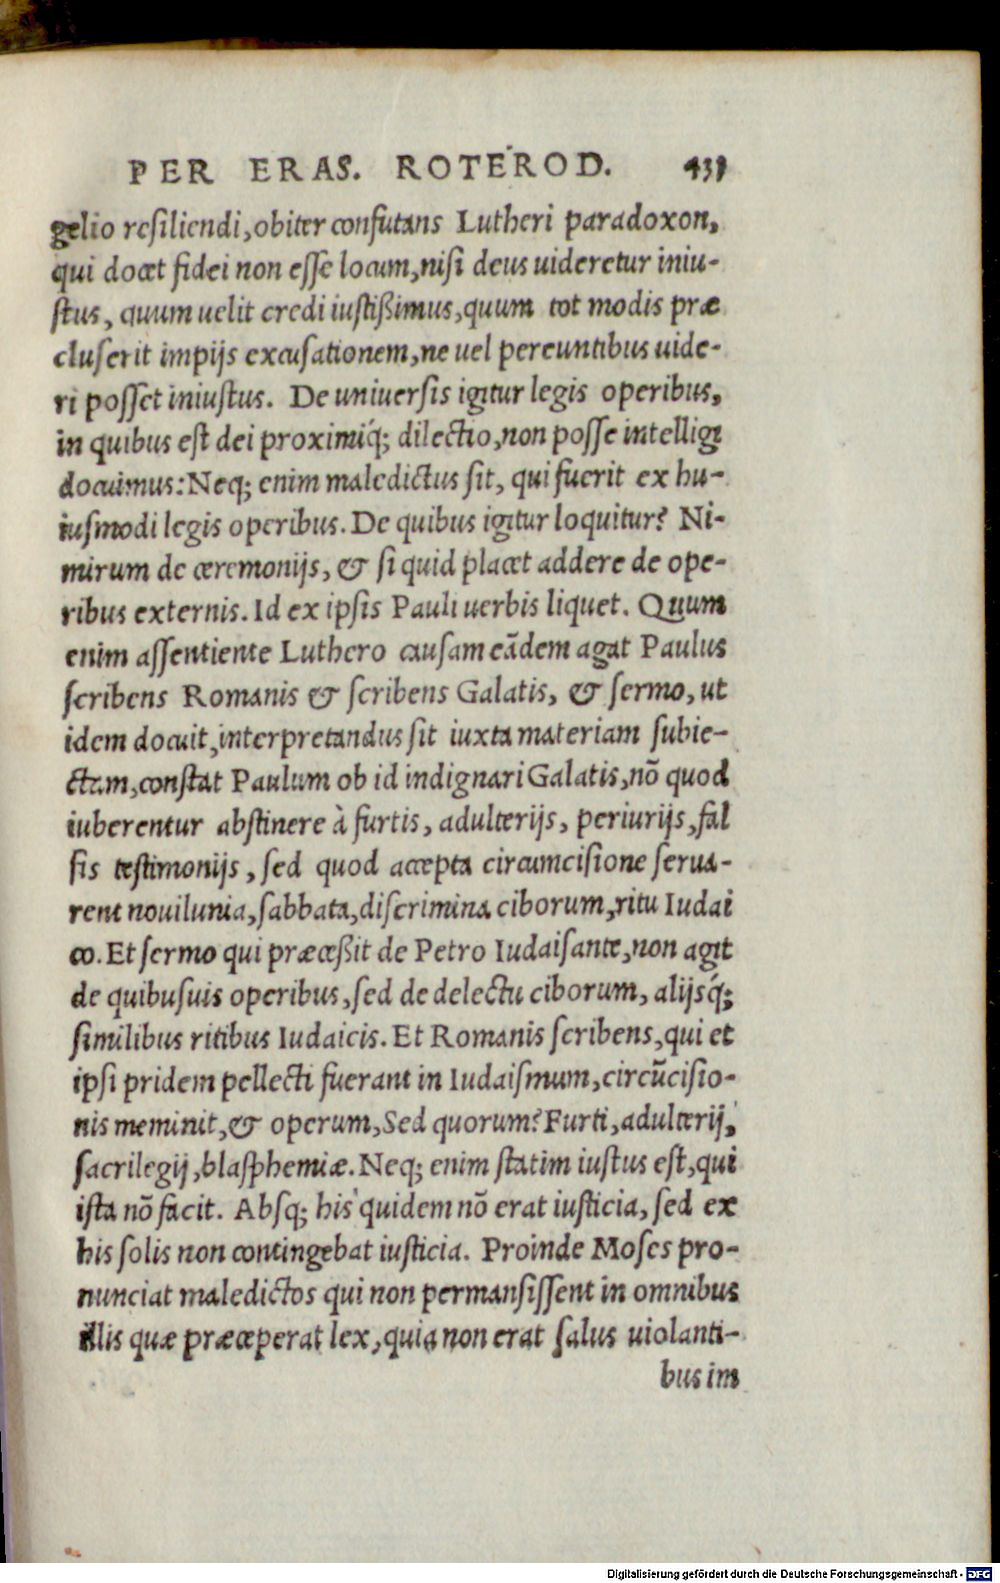 PER ERAS. ROTEROD. 431
gelio resiliendi, obiter confutans Lutheri paradoxon,
qui docet fidei non esse locum, nisi deus uideretur iniu-
stus, quum uelit credi iustißimus, quum tot modis præ
cluserit impijs excusationem, ne uel pereuntibus uide-
ri posset iniustus. De uniuersis igitur legis operibus,
in quibus est dei proximiq́; dilectio, non posse intelligi
docuimus: Neq; enim maledictus sit, qui fuerit ex hu-
iusmodi legis operibus. De quibus igitur loquitur? Ni-
mirum de ceremonijs, & si quid placet addere de ope-
ribus externis. Id ex ipsis Pauli uerbis liquet. Quum
enim assentiente Luthero causam eãdem agat Paulus
scribens Romanis & scribens Galatis, & sermo, ut
idem docuit, interpretandus sit iuxta materiam subie-
ctam, constat Paulum ob id indignari Galatis, nõ quod
iuberentur abstinere à furtis, adulterijs, periurijs, fal
sis testimonijs, sed quod accepta circumcisione serua-
rent nouilunia, sabbata, discrimina ciborum, ritu Iudai
co. Et sermo qui præceßit de Petro Iudaisante, non agit
de quibusuis operibus, sed de delectu ciborum, alijsq́;
similibus ritibus Iudaicis. Et Romanis scribens, qui et
ipsi pridem pellecti fuerant in Iudaismum, circũcisio-
nis meminit, & operum, Sed quorum? Furti, adulterij,
sacrilegij, blasphemiæ. Neq; enim statim iustus est, qui
ista nõ facit. Absq; his quidem nõ erat iusticia, sed ex
his solis non contingebat iusticia. Proinde Moses pro-
nunciat maledictos qui non permansissent in omnibus
illis quæ præceperat lex, quia non erat salus uiolanti-
bus im
Digitalisierung gefördert durch die Deutsche Forschungsgemeinschaft - DFG